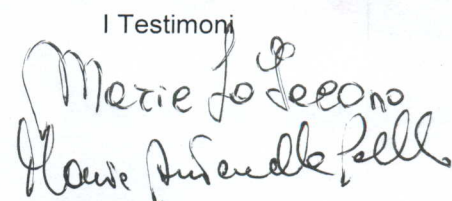 I Testimoni
Maria Lo Iacono
Maria Antonella